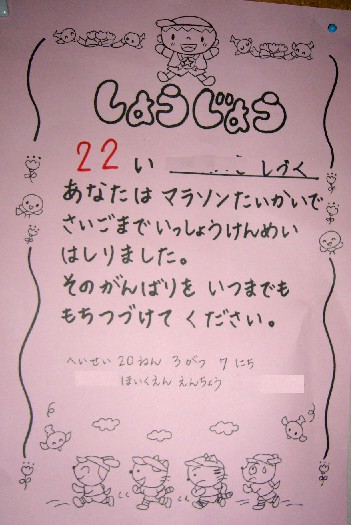 しょうじょう
22 い しづく
あなたは マラソンたいかいで
さいごまでいっしょうけんめい
はしりました。
そのがんばりを いつまでも
もちつづけて ください。
へいせい 20ねん 3がつ 7にち
ほいくえん えんちょう